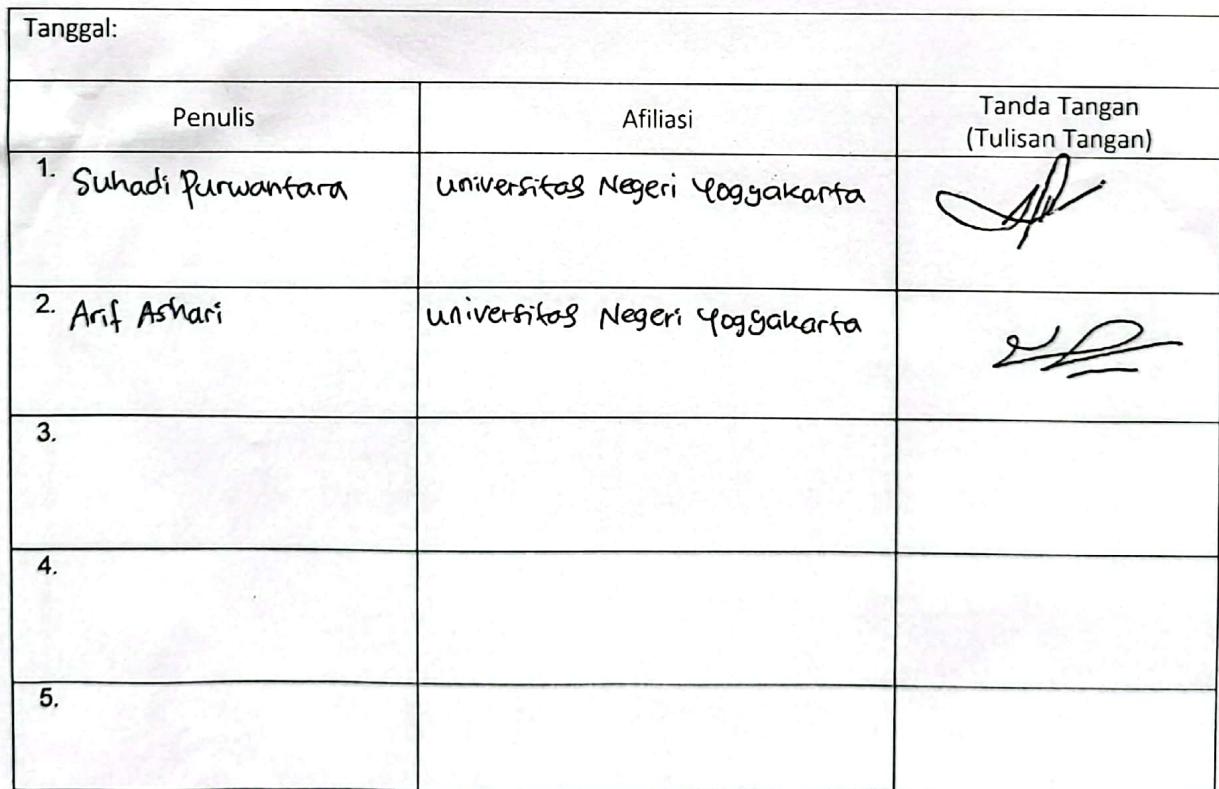 Tanggal:
Penulis
Afiliasi
Tanda Tangan
(Tulisan Tangan)
1. Suhadi Purwantara
universitas Negeri Yogyakarta
2. Arif Ashari
universitas Negeri Yogyakarta
3.
4.
5.